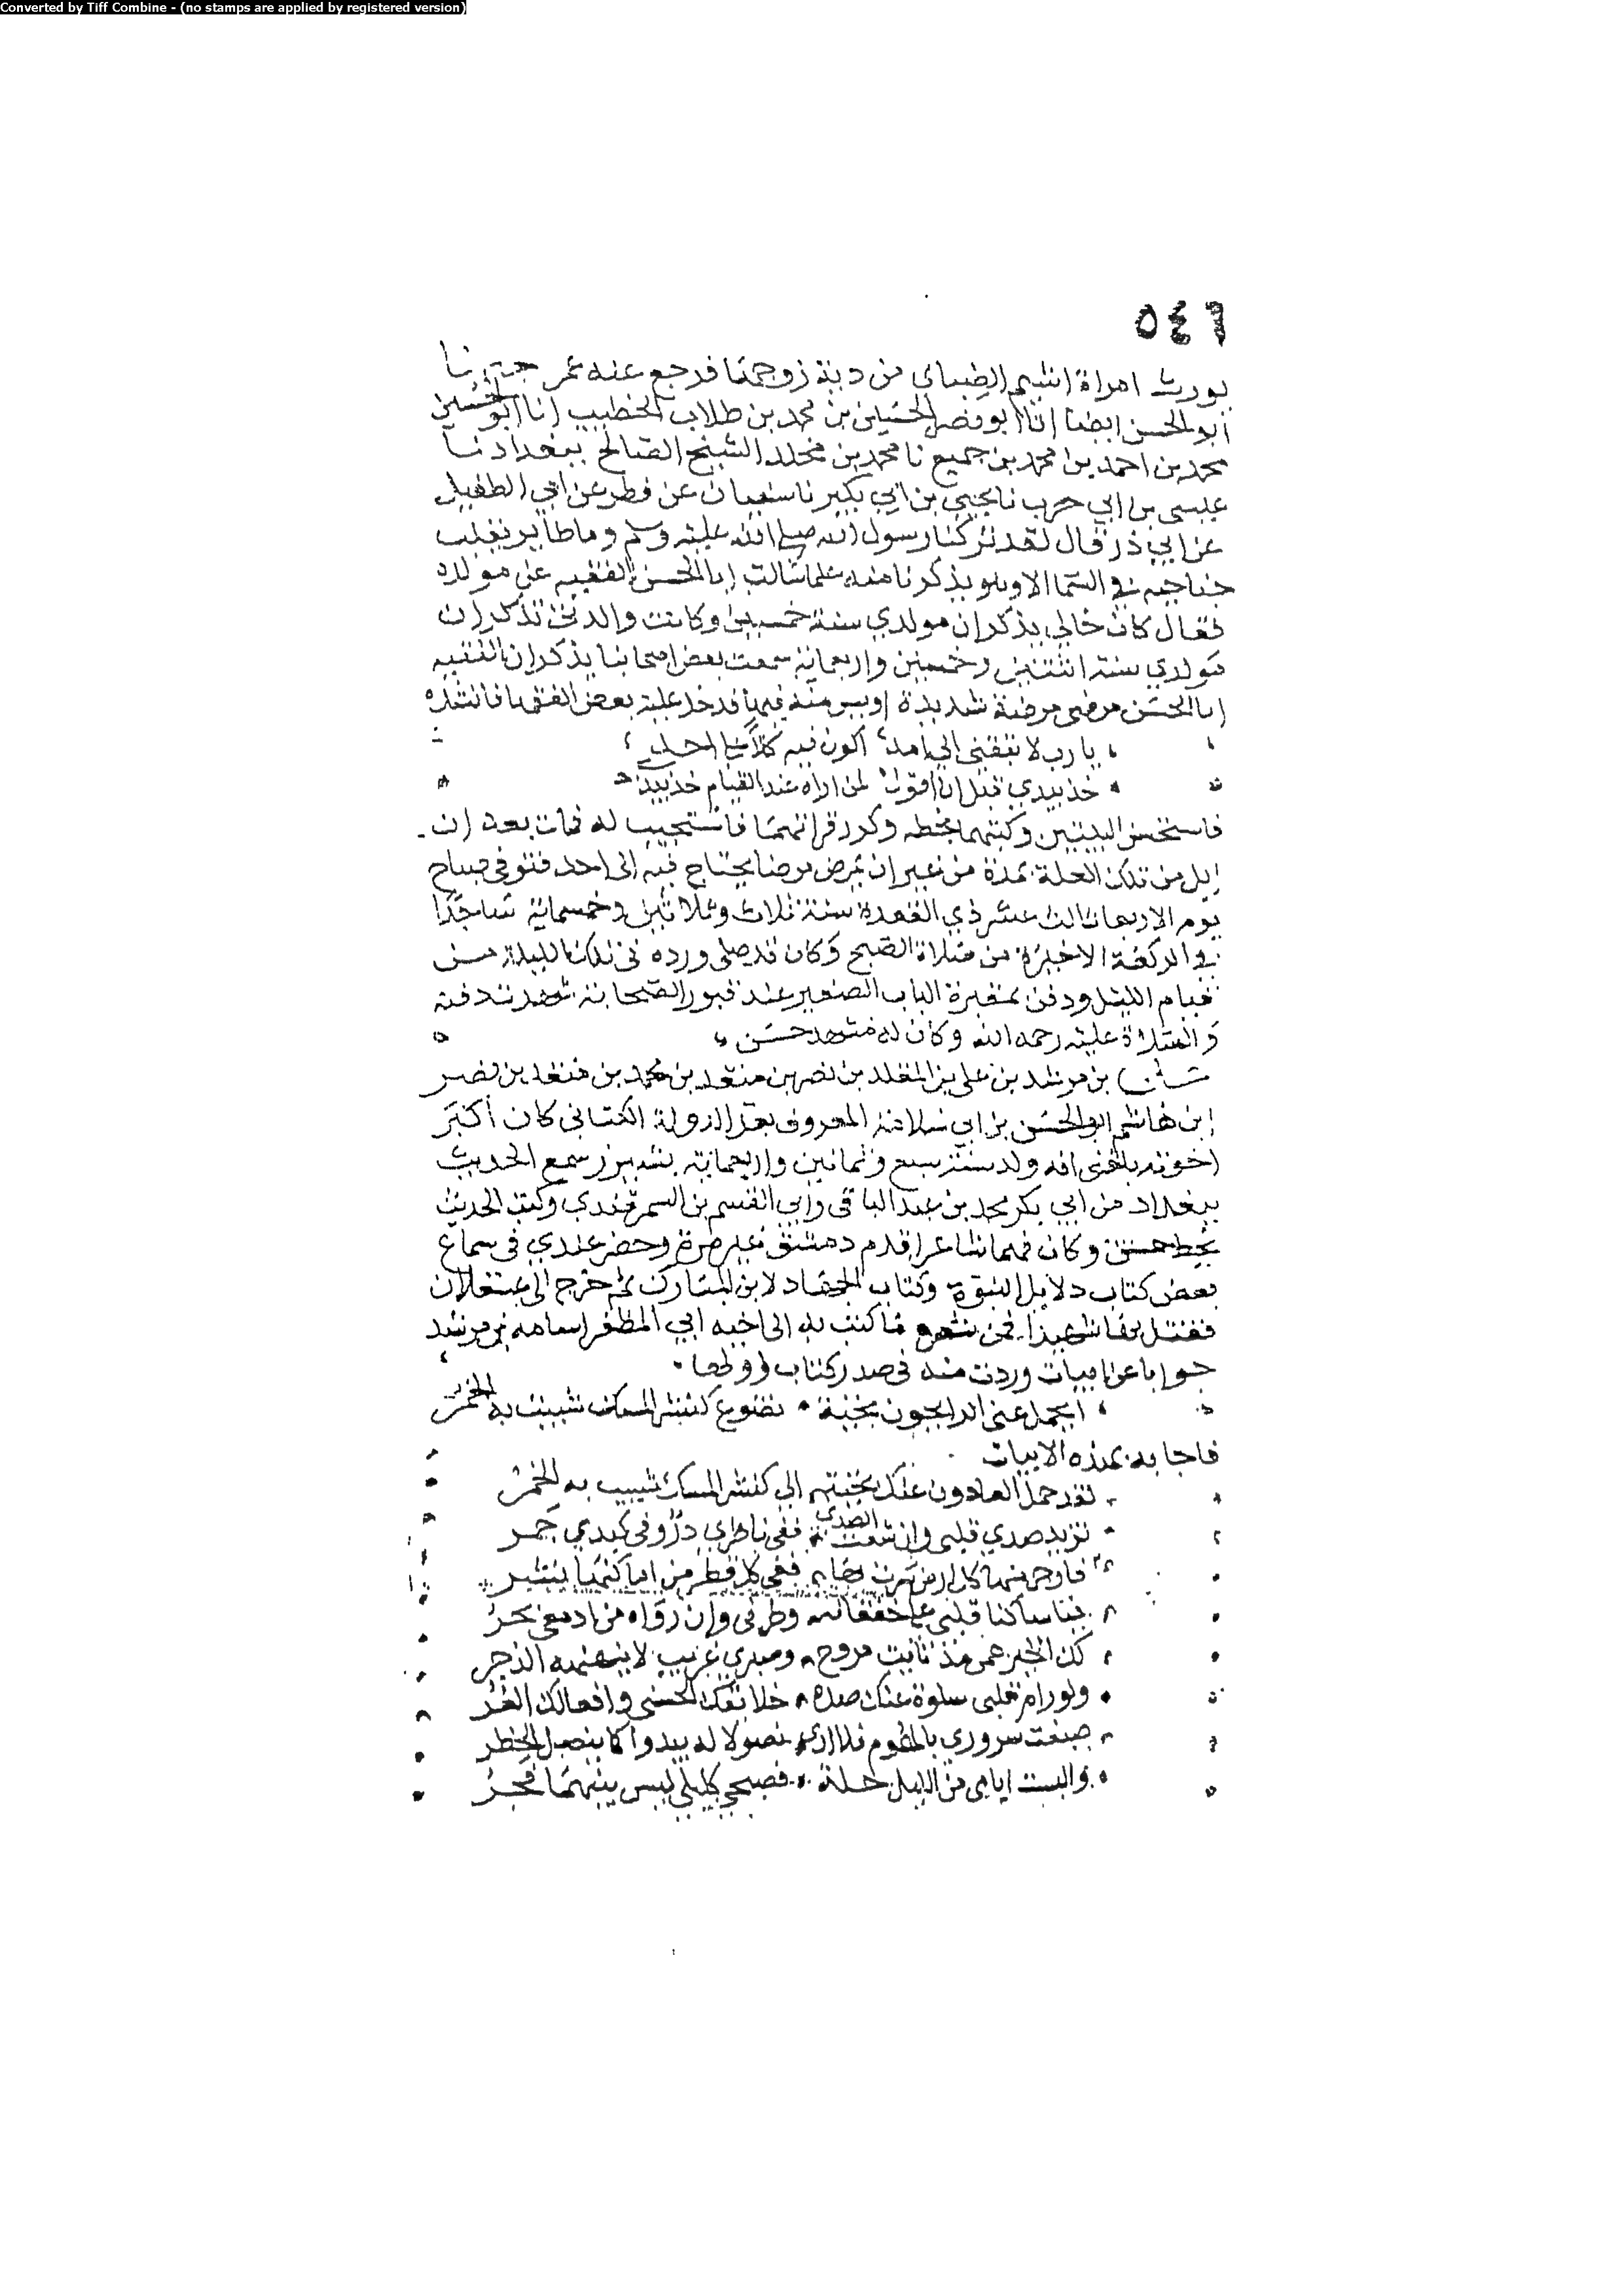 Converted by Tiff Combine - (no stamps are applied by registered version)
٥٤٦
يورث امراة اشيم الضبابي من دية زوجها فرجع عنه عمر حدثنا
ابو الحسن ايضا انا ابو نصر الحسين بن محمد بن طلاب الخطيب انا ابو الحسين
محمد بن احمد بن محمد بن جميع نا محمد بن مخلد الشيخ الصالح ببغداد نا
عيسى بن ابي حرب نا يحيى بن ابي بكير نا سفيان عن فطر عن ابي الطفيل
عن ابي ذر قال لقد تركنا رسول الله صلى الله عليه وسلم وما طاير يقلب
جناحيه في السما الا وهو يذكرنا منه علما سالت ابا الحسن الفقيه عن مولده
فقال كان خالي يذكر ان مولدي سنة خمسين وكانت والدتي تذكر ان
مولدي سنة اثنتين وخمسين واربعماية سمعت بعض اصحابنا يذكر ان الفقيه
ابا الحسن مرض مرضة شديدة اويس منه فيها فدخل عليه بعض الفقها فانشده
يا رب لا تبقني الى امد اكون فيه كلا على احد
خذ بيدي قبل ان اقول لمن اراه عند القيام خذ بيدي
فاستحسن البيتين وكتبهما بخطه وكرر قراتهما فاستجيب له فمات بعد ان
ابل من تلك العلة بمدة من غير ان يمرض مرضا يحتاج فيه الى احد فتوفي صباح
يوم الاربعا ثالث عشر ذي القعدة سنة ثلاث وثلاثين وخمسماية ساجدا
في الركعة الاخيرة من صلاة الصبح وكان قد صلى ورده في تلك الليلة من
قيام الليل ودفن بمقبرة الباب الصغير عند قبور الصحابة شهدت دفنه
والصلاة عليه رحمه الله وكان له مشهد حسن
بن مرشد بن علي بن المقلد بن نصر بن منقذ بن محمد بن منقذ بن نصر
ابن هاشم ابو الحسن بن ابي سلامة المعروف بعز الدولة الكناني كان اكبر
اخوته بلغني انه ولد سنة سبع وثمانين واربعماية بشيزر سمع الحديث
ببغداد من ابي بكر محمد بن عبد الباقي وابي القسم بن السمرقندي وكتب الحديث
بخط حسن وكان فهما شاعرا قدم دمشق غير مرة وحضر عندي في سماع
بعض كتاب دلايل النبوة وكتاب الجهاد لابن المبارك ثم خرج الى عسقلان
فقتل بها شهيدا فمن شعره ما كتب به الى اخيه ابي المظفر اسامه بن مرشد
جوابا عن ابيات وردت منه في صدر كتاب اولها
ايحمل عني الرايحون تحية تضوع كنشر المسك شيبت به الخمر
فاجابه بهذه الابيات
لقد حمل العادون عنك تحية الي كنشر المسك شيبت به الخمر
تزيد صدي قلبي وان الصدى ففي ناظري در وفي كبدي جمر
كل ارض ففي كل قطر من ينشر
بنا ساكنا قلبي على خفقانه وطرفي وان رواه من ادمعي بحر
لك الخير همي مذ نايت مروح وصبري غريب لا ينهنهه الزجر
ولو رام قلبي سلوة عنك صده خلايقك الحسنى وافعالك الغر
صبغت سروري بالهموم فلا ارى نصولا له يبدوا كما ينصل الخطر
والبست ايامي من الليل حلة فصبحي كليلي ليس بينهما فجر